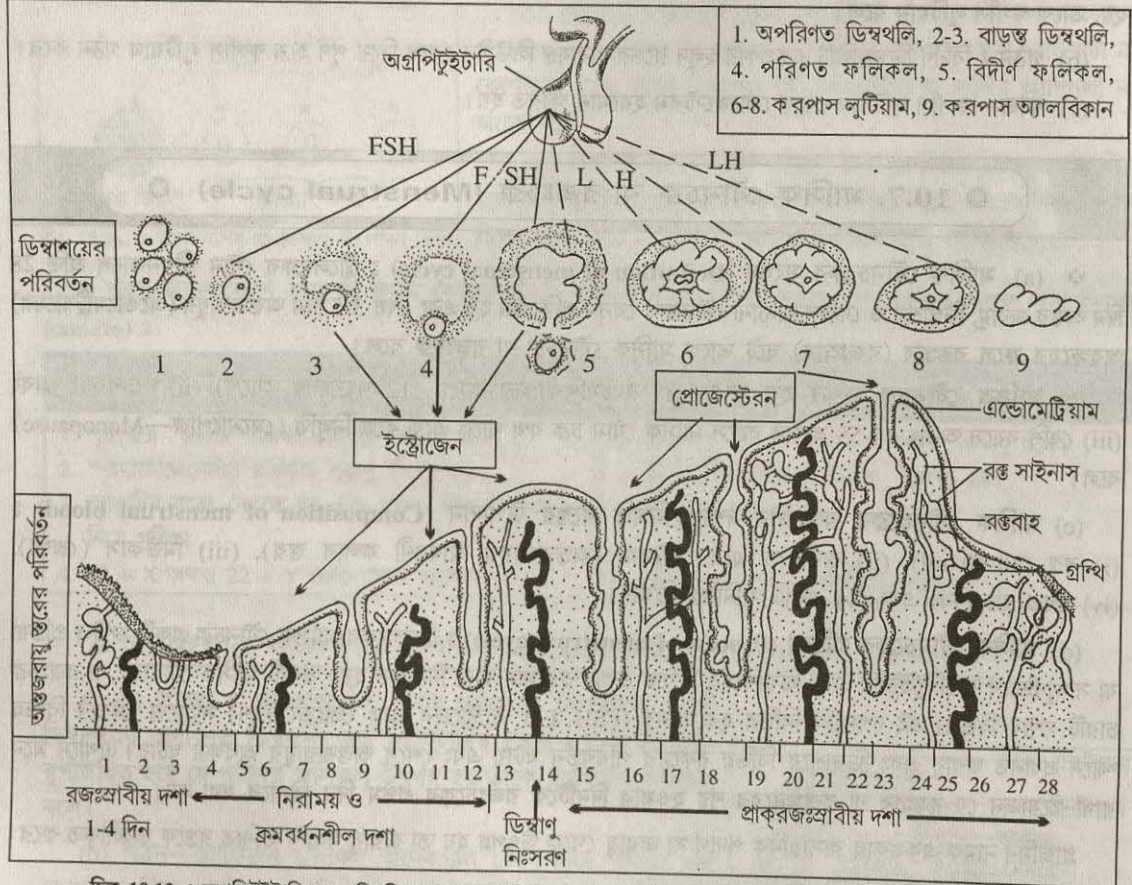 1. অপরিণত ডিম্বথলি, 2-3, বাড়ন্ত ডিম্বথলি,
4. পরিণত ফলিকল, 5. বিদীর্ণ ফলিকল,
6-8. করপাস লুটিয়াম, 9. করপাস অ্যালবিকান
অগ্রপিটুইটারি
FSH
F SH
L H
LH
ডিম্বাশয়ের
পরিবর্তন
1 2 3 4 5 6 7 8 9
ইস্ট্রোজেন
প্রোজেস্টেরন
এন্ডোমেট্রিয়াম
রক্ত সাইনাস
রক্তবাহ
গ্রন্থি
অন্তজরায়ু স্তরের পরিবর্তন
1 2 3 4 5 6 7 8 9 10 11 12 13 14 15 16 17 18 19 20 21 22 23 24 25 26 27 28
রজঃস্রাবীয় দশা
1-4 দিন
নিরাময় ও
ক্রমবর্ধনশীল দশা
ডিম্বাণু
নিঃসরণ
প্রাক্‌রজঃস্রাবীয় দশা